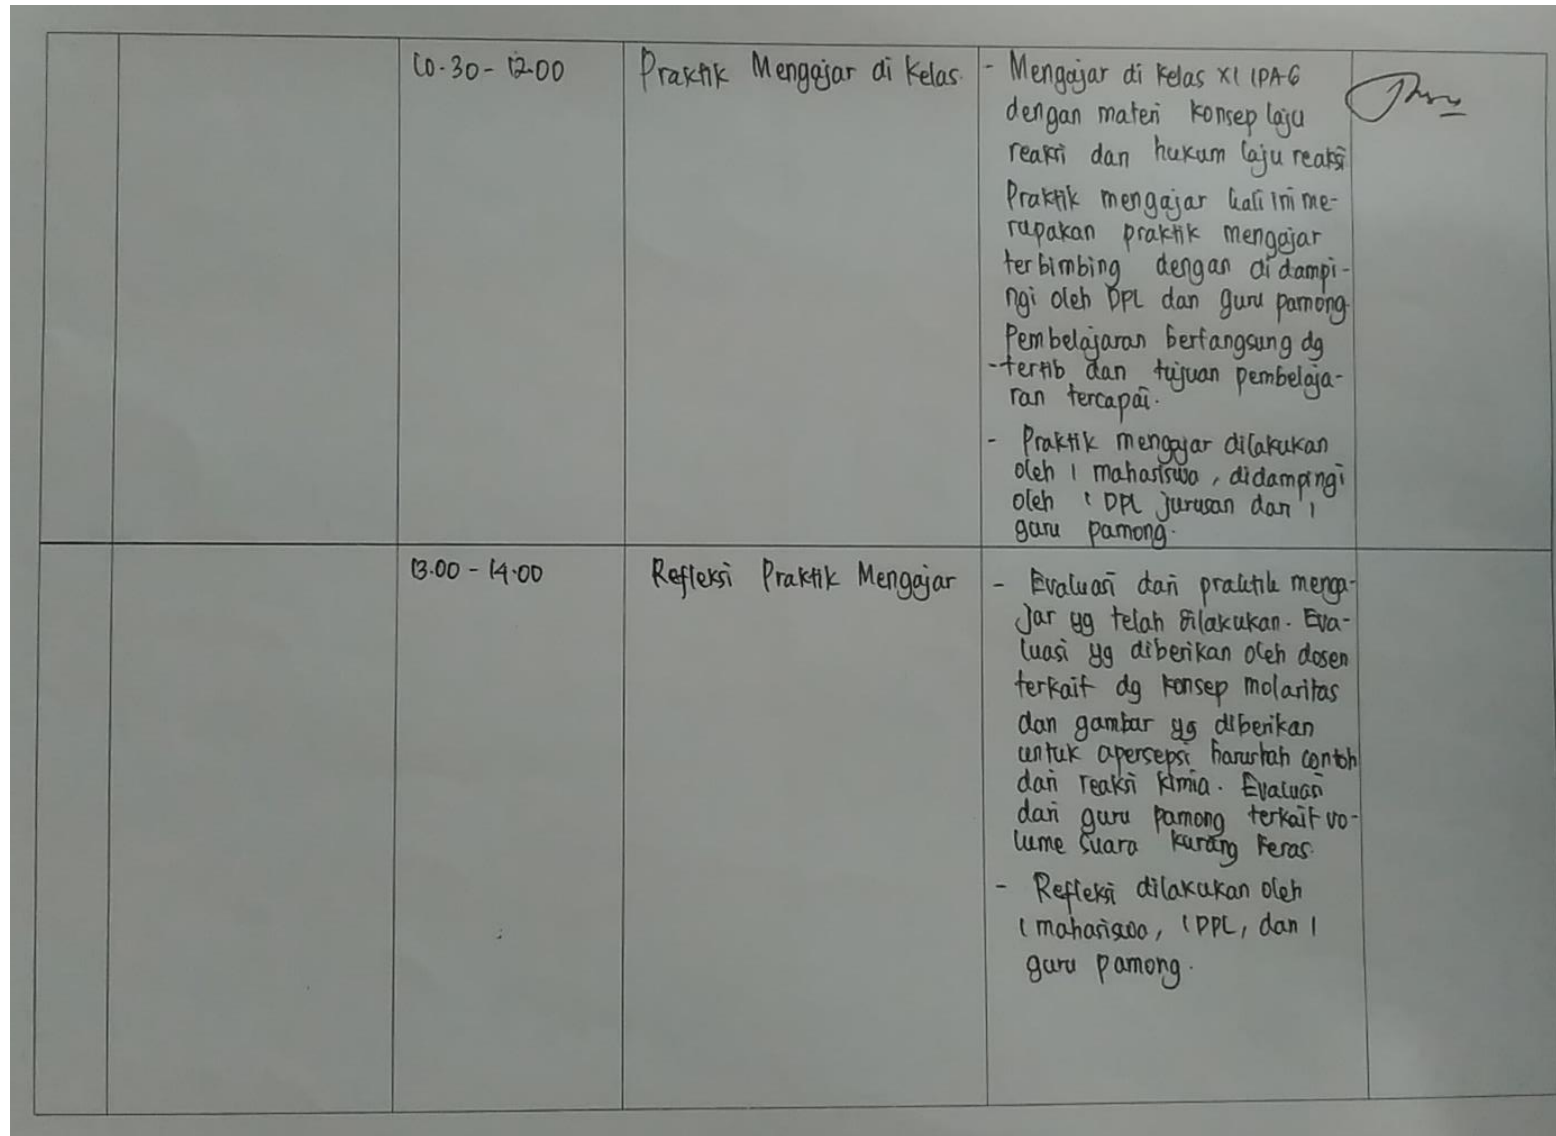 10.30 - 12.00
Praktik Mengajar di Kelas.
- Mengajar di Kelas XI IPA 6
dengan materi konsep laju
reaksi dan hukum laju reaksi
Praktik mengajar kali ini me-
rupakan praktik mengajar
terbimbing dengan didampi-
ngi oleh DPL dan guru pamong.
Pembelajaran berlangsung dg
- tertib dan tujuan pembelaja-
ran tercapai.
- Praktik mengajar dilakukan
oleh 1 mahasiswa, didampingi
oleh 1 DPL jurusan dan 1
guru pamong.
13.00 - 14.00
Refleksi Praktik Mengajar
- Evaluasi dari praktik menga-
jar yg telah dilakukan. Eva-
luasi yg diberikan oleh dosen
terkait dg konsep molaritas
dan gambar yg diberikan
untuk apersepsi haruslah contoh
dari reaksi kimia. Evaluasi
dari guru pamong terkait vo-
lume suara kurang keras.
- Refleksi dilakukan oleh
1 mahasiswa, 1 DPL, dan 1
guru pamong.